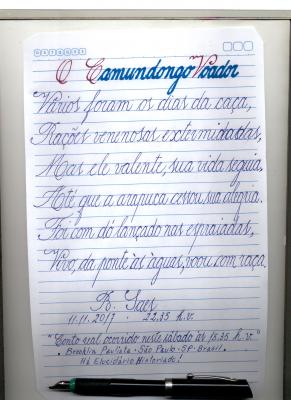 O Camundongo Voador
Vários foram os dias da caça,
Rações venenosas exterminadas,
Mas ele valente, sua vida seguia,
Até que a arapuca cessou sua alegria.
Foi com dó lançado nas espraiadas,
Vivo, da ponte às águas, voou com raça.
R. Saes
11.11.2017 - 22.35 h.v.
"Conto real ocorrido neste sábado às 15.35 h.v."
Brooklin Paulista - São Paulo - SP - Brasil.
Há Elucidário Historiado!